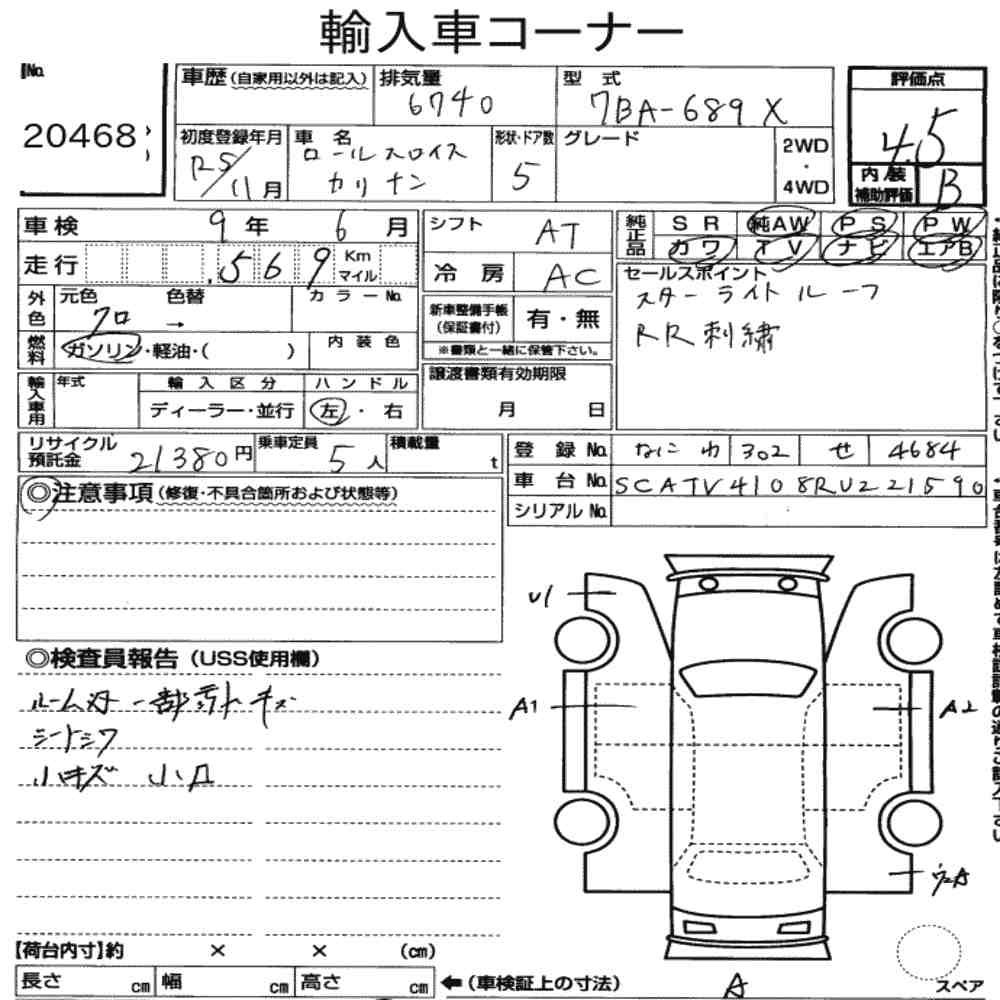 輸入車コーナー
No.
20468
車歴(自家用以外は記入)
排気量
6740
型 式
7BA-689X
評価点
4.5
内装補助評価
B
初度登録年月
R5/11月
車 名
ロールスロイス
カリナン
形状・ドア数
5
グレード
2WD
・
4WD
車検 9年 6月
走行 569 Km マイル
シフト AT
冷房 AC
純正品
SR 純AW PS PW
カワ TV ナビ エアB
セールスポイント
スターライトルーフ
RR刺繍
外色
元色 クロ → 色替
カラーNo.
燃料
ガソリン・軽油・( )
内装色
新車整備手帳(保証書付)
有・無
※書類と一緒に保管下さい。
輸入車用
年式
輸入区分
ディーラー・並行
ハンドル
左・右
譲渡書類有効期限
月 日
リサイクル預託金 21380円
乗車定員 5人
積載量 t
登録No. なにわ 302 せ 4684
車台No. SCATV4108RU221590
シリアルNo.
◎注意事項(修復・不具合箇所および状態等)
◎検査員報告(USS使用欄)
ルーム内一部
キズ
シートシワ
小キズ 小凹
U1
A1
A2
A
スペア
【荷台内寸】約 × × (cm)
長さ cm 幅 cm 高さ cm
←(車検証上の寸法)